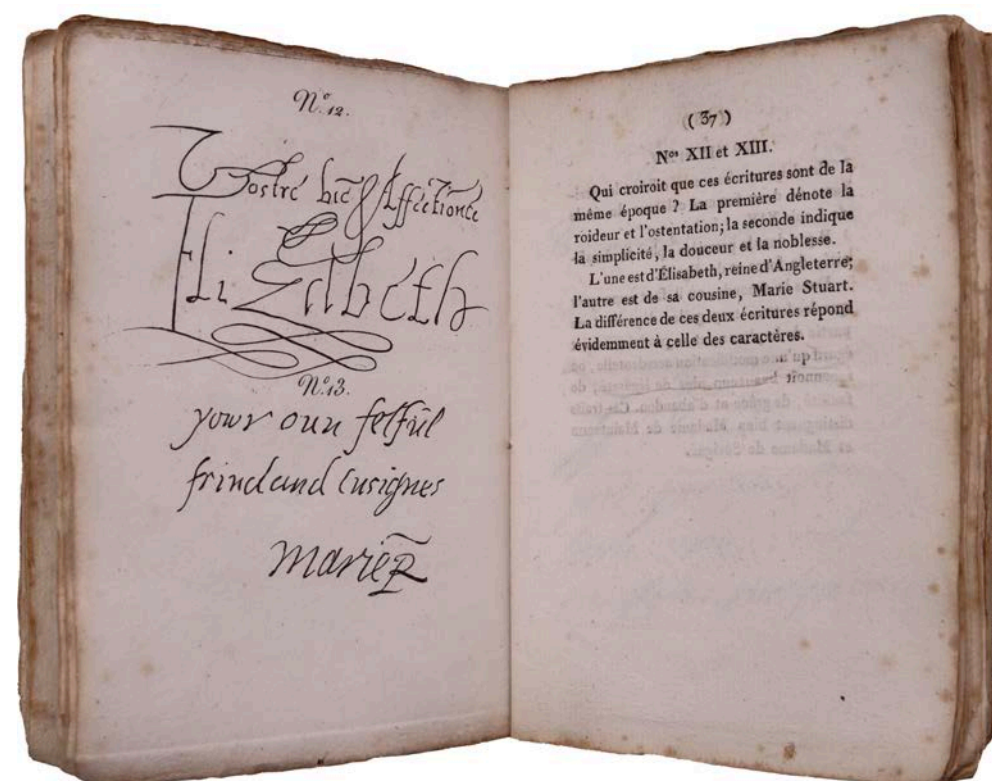 N.º 12.
Vostre biē Affectionēe
Elizabeth
N.º 13.
yowr oun felful
frind and cusignes
marie R
( 37 )
Nos XII et XIII.
Qui croiroit que ces écritures sont de la
même époque ? La première dénote la
roideur et l'ostentation; la seconde indique
la simplicité, la douceur et la noblesse.
L'une est d'Élisabeth, reine d'Angleterre;
l'autre est de sa cousine, Marie Stuart.
La différence de ces deux écritures répond
évidemment à celle des caractères.